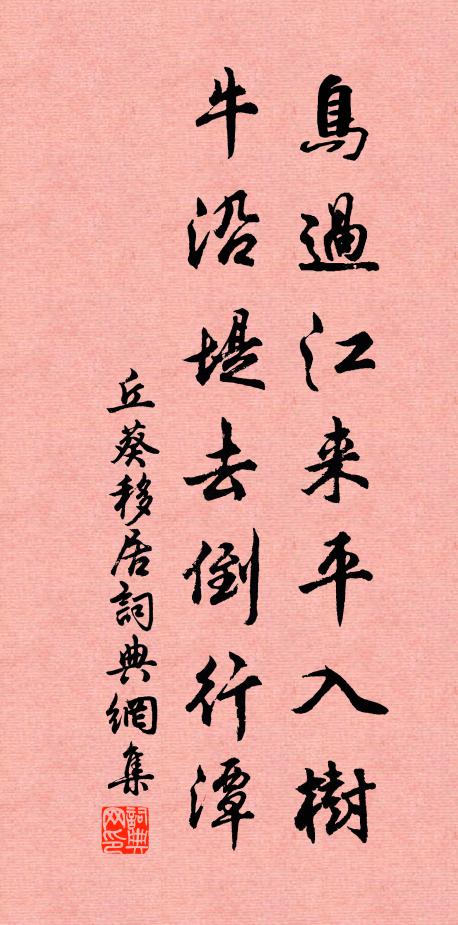 鳥過江来平入樹
牛沿堤去倒行潭
丘葵移居詞典網集
詞典网印